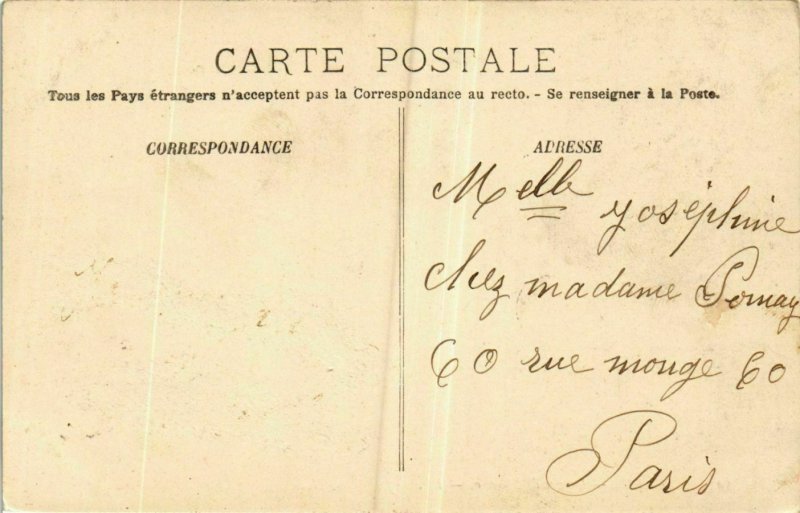 CARTE POSTALE
Tous les Pays étrangers n'acceptent pas la Correspondance au recto. - Se renseigner à la Poste.
CORRESPONDANCE
ADRESSE
Melle yoséphine
chez madame
60 rue monge 60
Paris